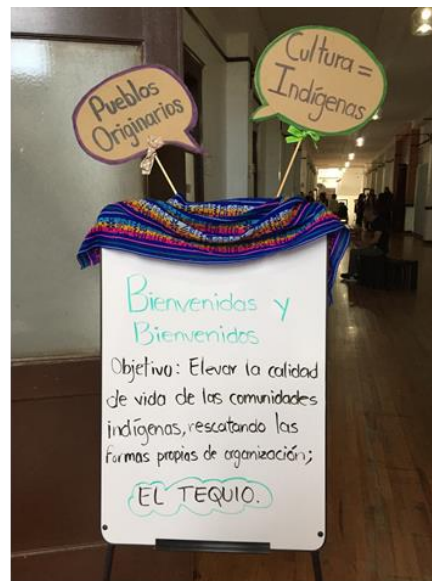 Pueblos
Originarios
Cultura =
Indígenas
Bienvenidas y
Bienvenidos
Objetivo: Elevar la calidad
de vida de las comunidades
indígenas, rescatando las
formas propias de organización;
EL TEQUIO.